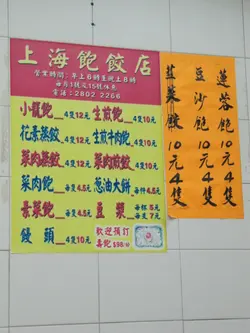 上海飽餃店
營業時間：早上6時至晚上8時
電話：2802 2266
小籠飽 4隻12元
生煎飽 4隻10元
花素蒸餃 4隻12元
生煎牛肉飽 4隻10元
菜肉蒸餃 4隻12元
菜肉煎餃 4隻10元
菜肉飽 每件4.5元
葱油大餅 每件4.5元
素菜飽 每件4.5元
豆漿 每杯5元
每支7元
饅頭 4隻10元
歡迎預訂
壽飽 $98/
蓮蓉飽10元4隻
豆沙飽10元4隻
韮菜餃10元4隻